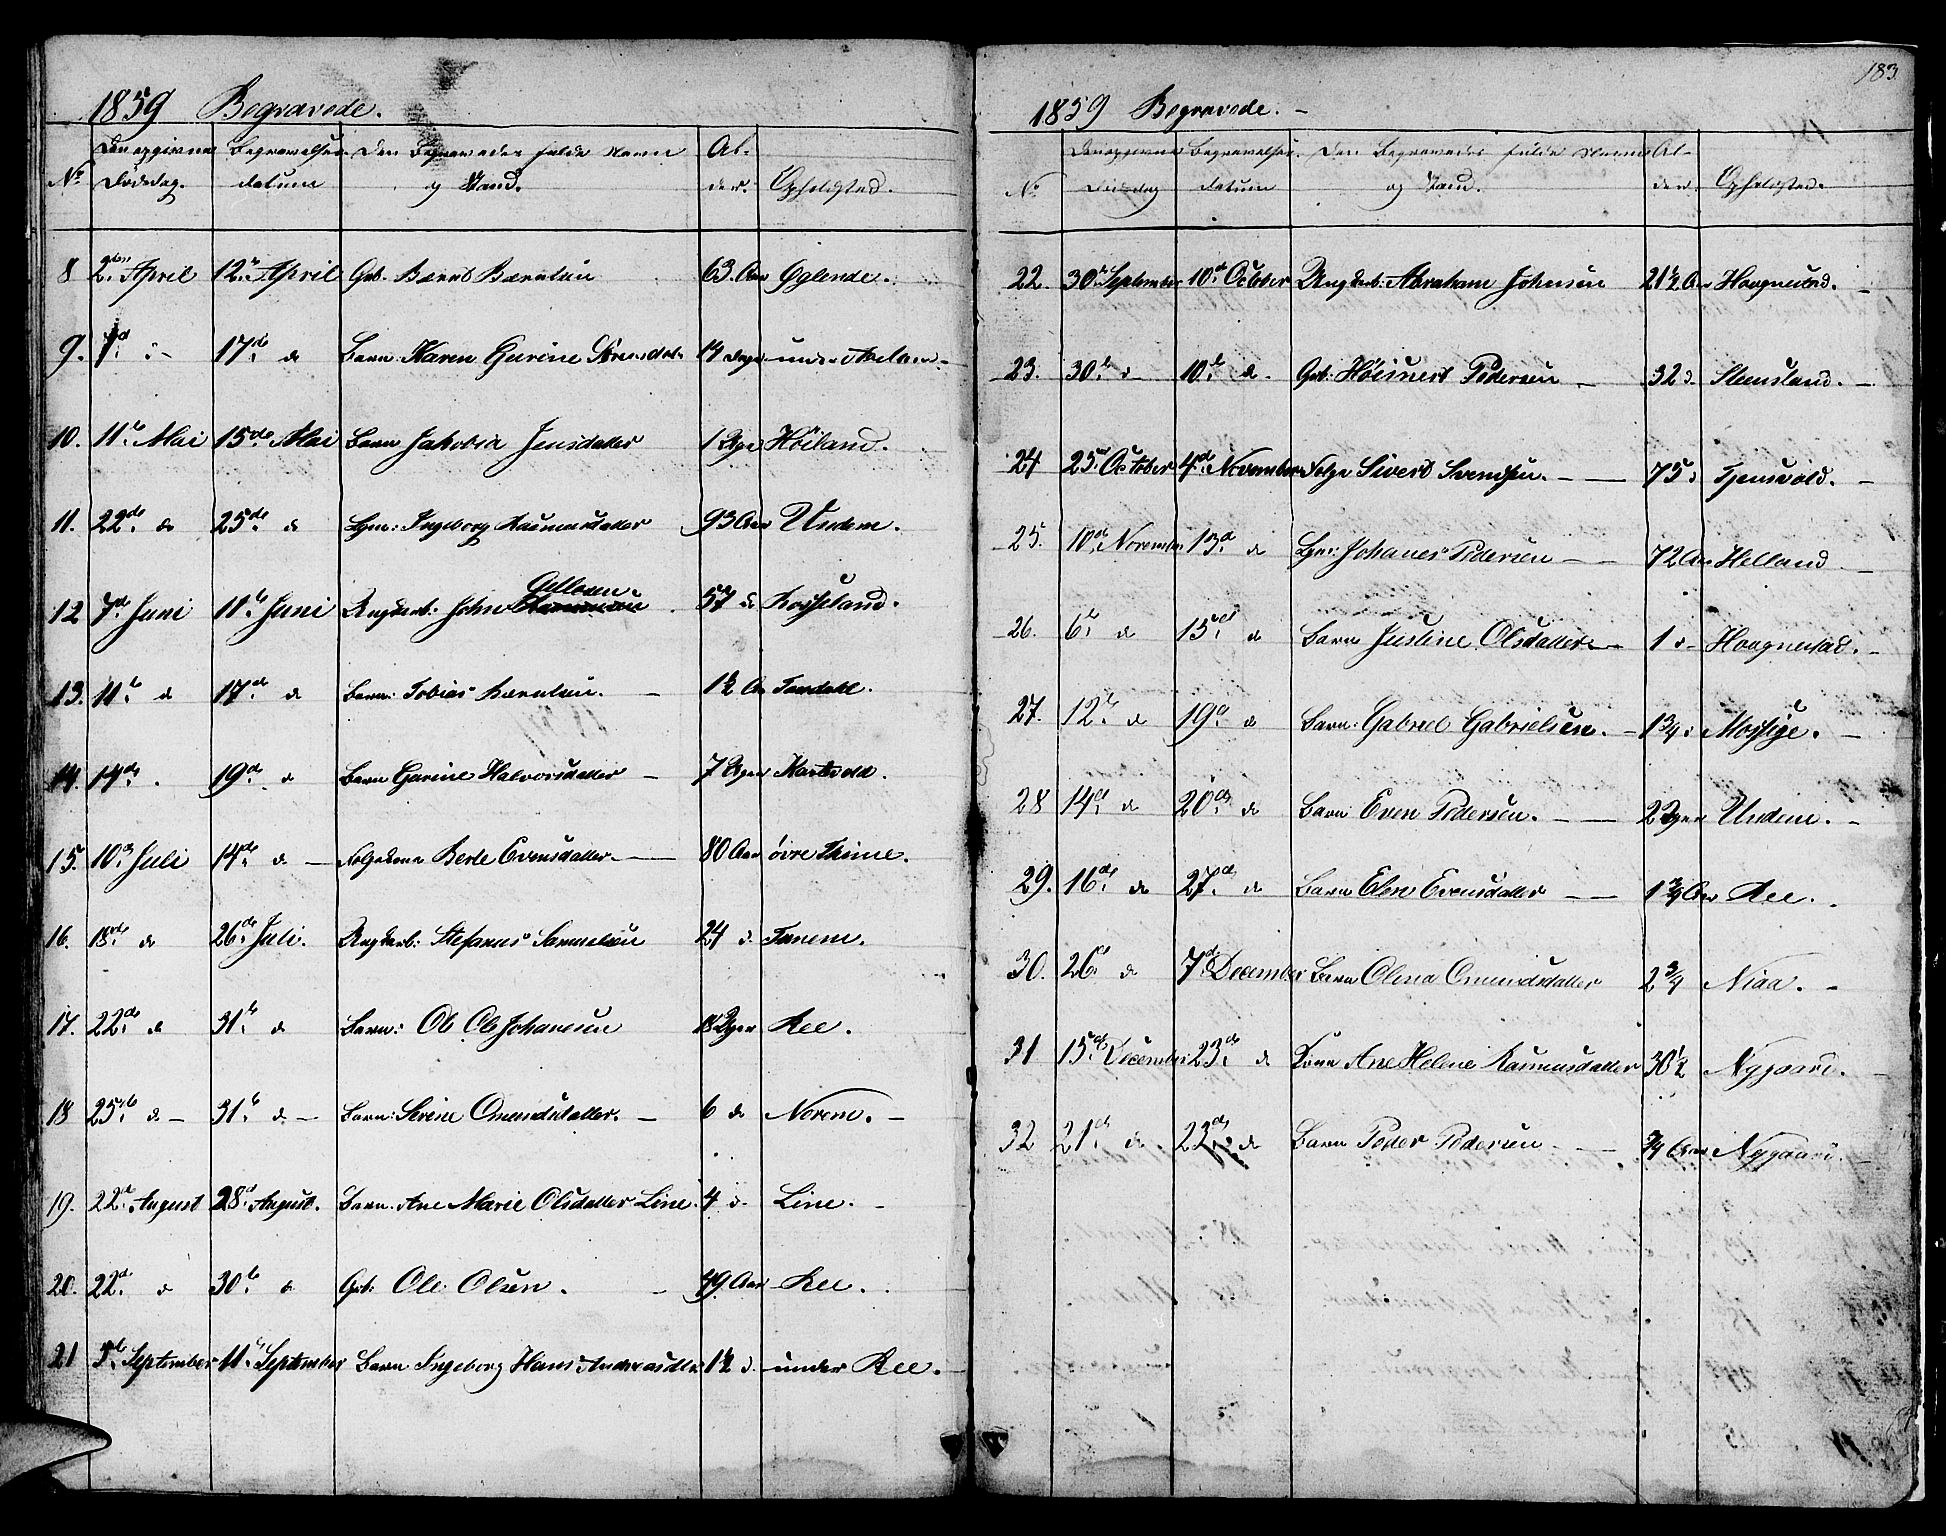 183
1859 Begravede.
No Den opgivne Dödsdag. Begravelses datum Den Begravedes fulde Navn og Stand. Alder. Opholdsted.
8 2den April 12te April Gbr. Bernt Berntsen 63 Aar Øglende.
9. 7d d 17de d Barn: Karen Gurine 14 Dage under
10. 11te Mai 15de Mai Barn Jakobia Jensdatter 1 Uge Höiland.
11. 22de do 25de d Lgm: Ingeborg Rasmusdatter 93 Aar Undem.
12 7de Juni 11te Juni Ungkarl: John 57 d Rosseland.
13. 11te d 17de d Barn: Tobias Berntsen. 1½ A Taxdahl.
14. 14de 19de d Barn Gurine Halvorsdatter 7 Uger Kartevold.
15. 10de Juli 14de d Folgekone Berte Evensdatter 80 Aar övre Thime.
16. 18de d 26de Juli. Ungkarl: Stefanus Samuelsen 24 d. Tunem.
17. 22de d 31te d Barn: Ole Ole Johanesen 18 Uger Ree.
18 25te d 31te d Barn: Serine Omundsdatter. 6 d Norem.
19. 22de August 28de August. Barn: Ane Marie Olsdatter Line. 4 d. Line.
20. 22de d 30te d Gbr: Ole Olsen. 49 Aar Ree.
21 5te September 11te September Barn Ingeborg Hans Andreasdtr 1½ d. under Ree.
1859 Begravede.
No Den opgivne Dödsdag Begravelses datum Den Begravedes fulde Navn og Stand. Alder. Opholdsted.
22. 30te September 10de October Ungkarl: Abraham Johnsen 21½ Aar Haagnestad.
23. 30te d 10de d. Gbr: Höinert Pedersen 32 d. Steensland.
24 25de October 4de November Folge Sivert Svendsen. 75 d Tjensvold.
25. 10de November 13de d Lgm: Johanes Pedersen 72 Aar Helland
26. 6te d 15de d Barn Justine Olsdatter 1 d Haagnestad.
27. 12te d 19de d Barn: Gabriel Gabrielsen. 1¾ d Mossige.
28 14de d 20de d Barn Even Pedersen. 2 Uger Undem.
29. 16de d 27de d Barn Elen Evensdatter 1¾ Aar Ree.
30. 26de d 7de December Barn Olena Omundsdatter 2¾ Niaa.
31 15de December 23de d Kone Ane Helene Rasmusdatter 30½ Nygaard.
32 21de d 23de d Barn Peder Pedersen ¾ Aar Nygaard.